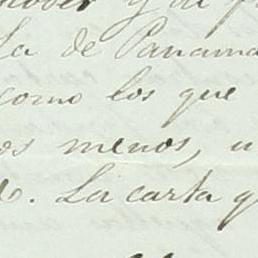 La de Panama
como los que
os menos, u
. La carta q